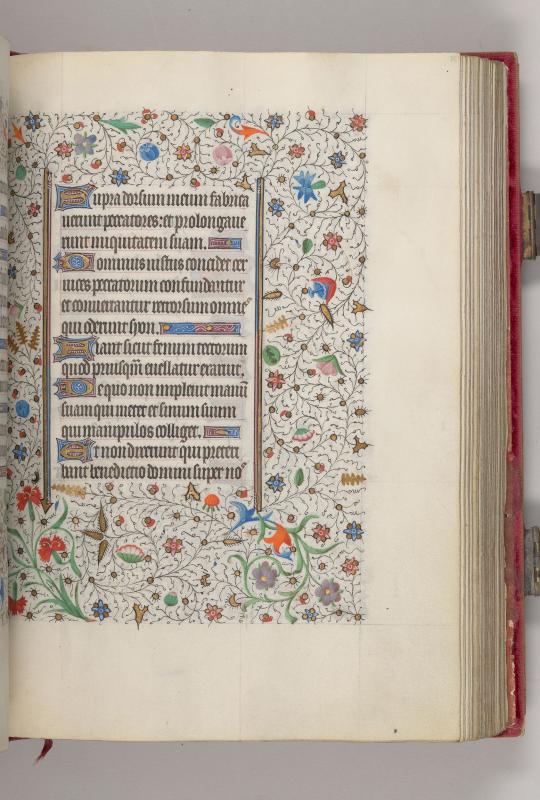 Supra dorsum meum fabrica
uerunt peccatores: et prolongaue
runt iniquitatem suam.
Dominus iustus concidet cer
uices peccatorum confundantur
et conuertantur retrorsum omnes
qui oderunt syon.
Fiant sicut fenum tectorum
quod priusqm euellatur exaruit.
De quo non impleuit manū
suam qui metet et sinum suum
qui manipulos colliget.
Et non dixerunt qui preteri
bant benedictio domini super uos